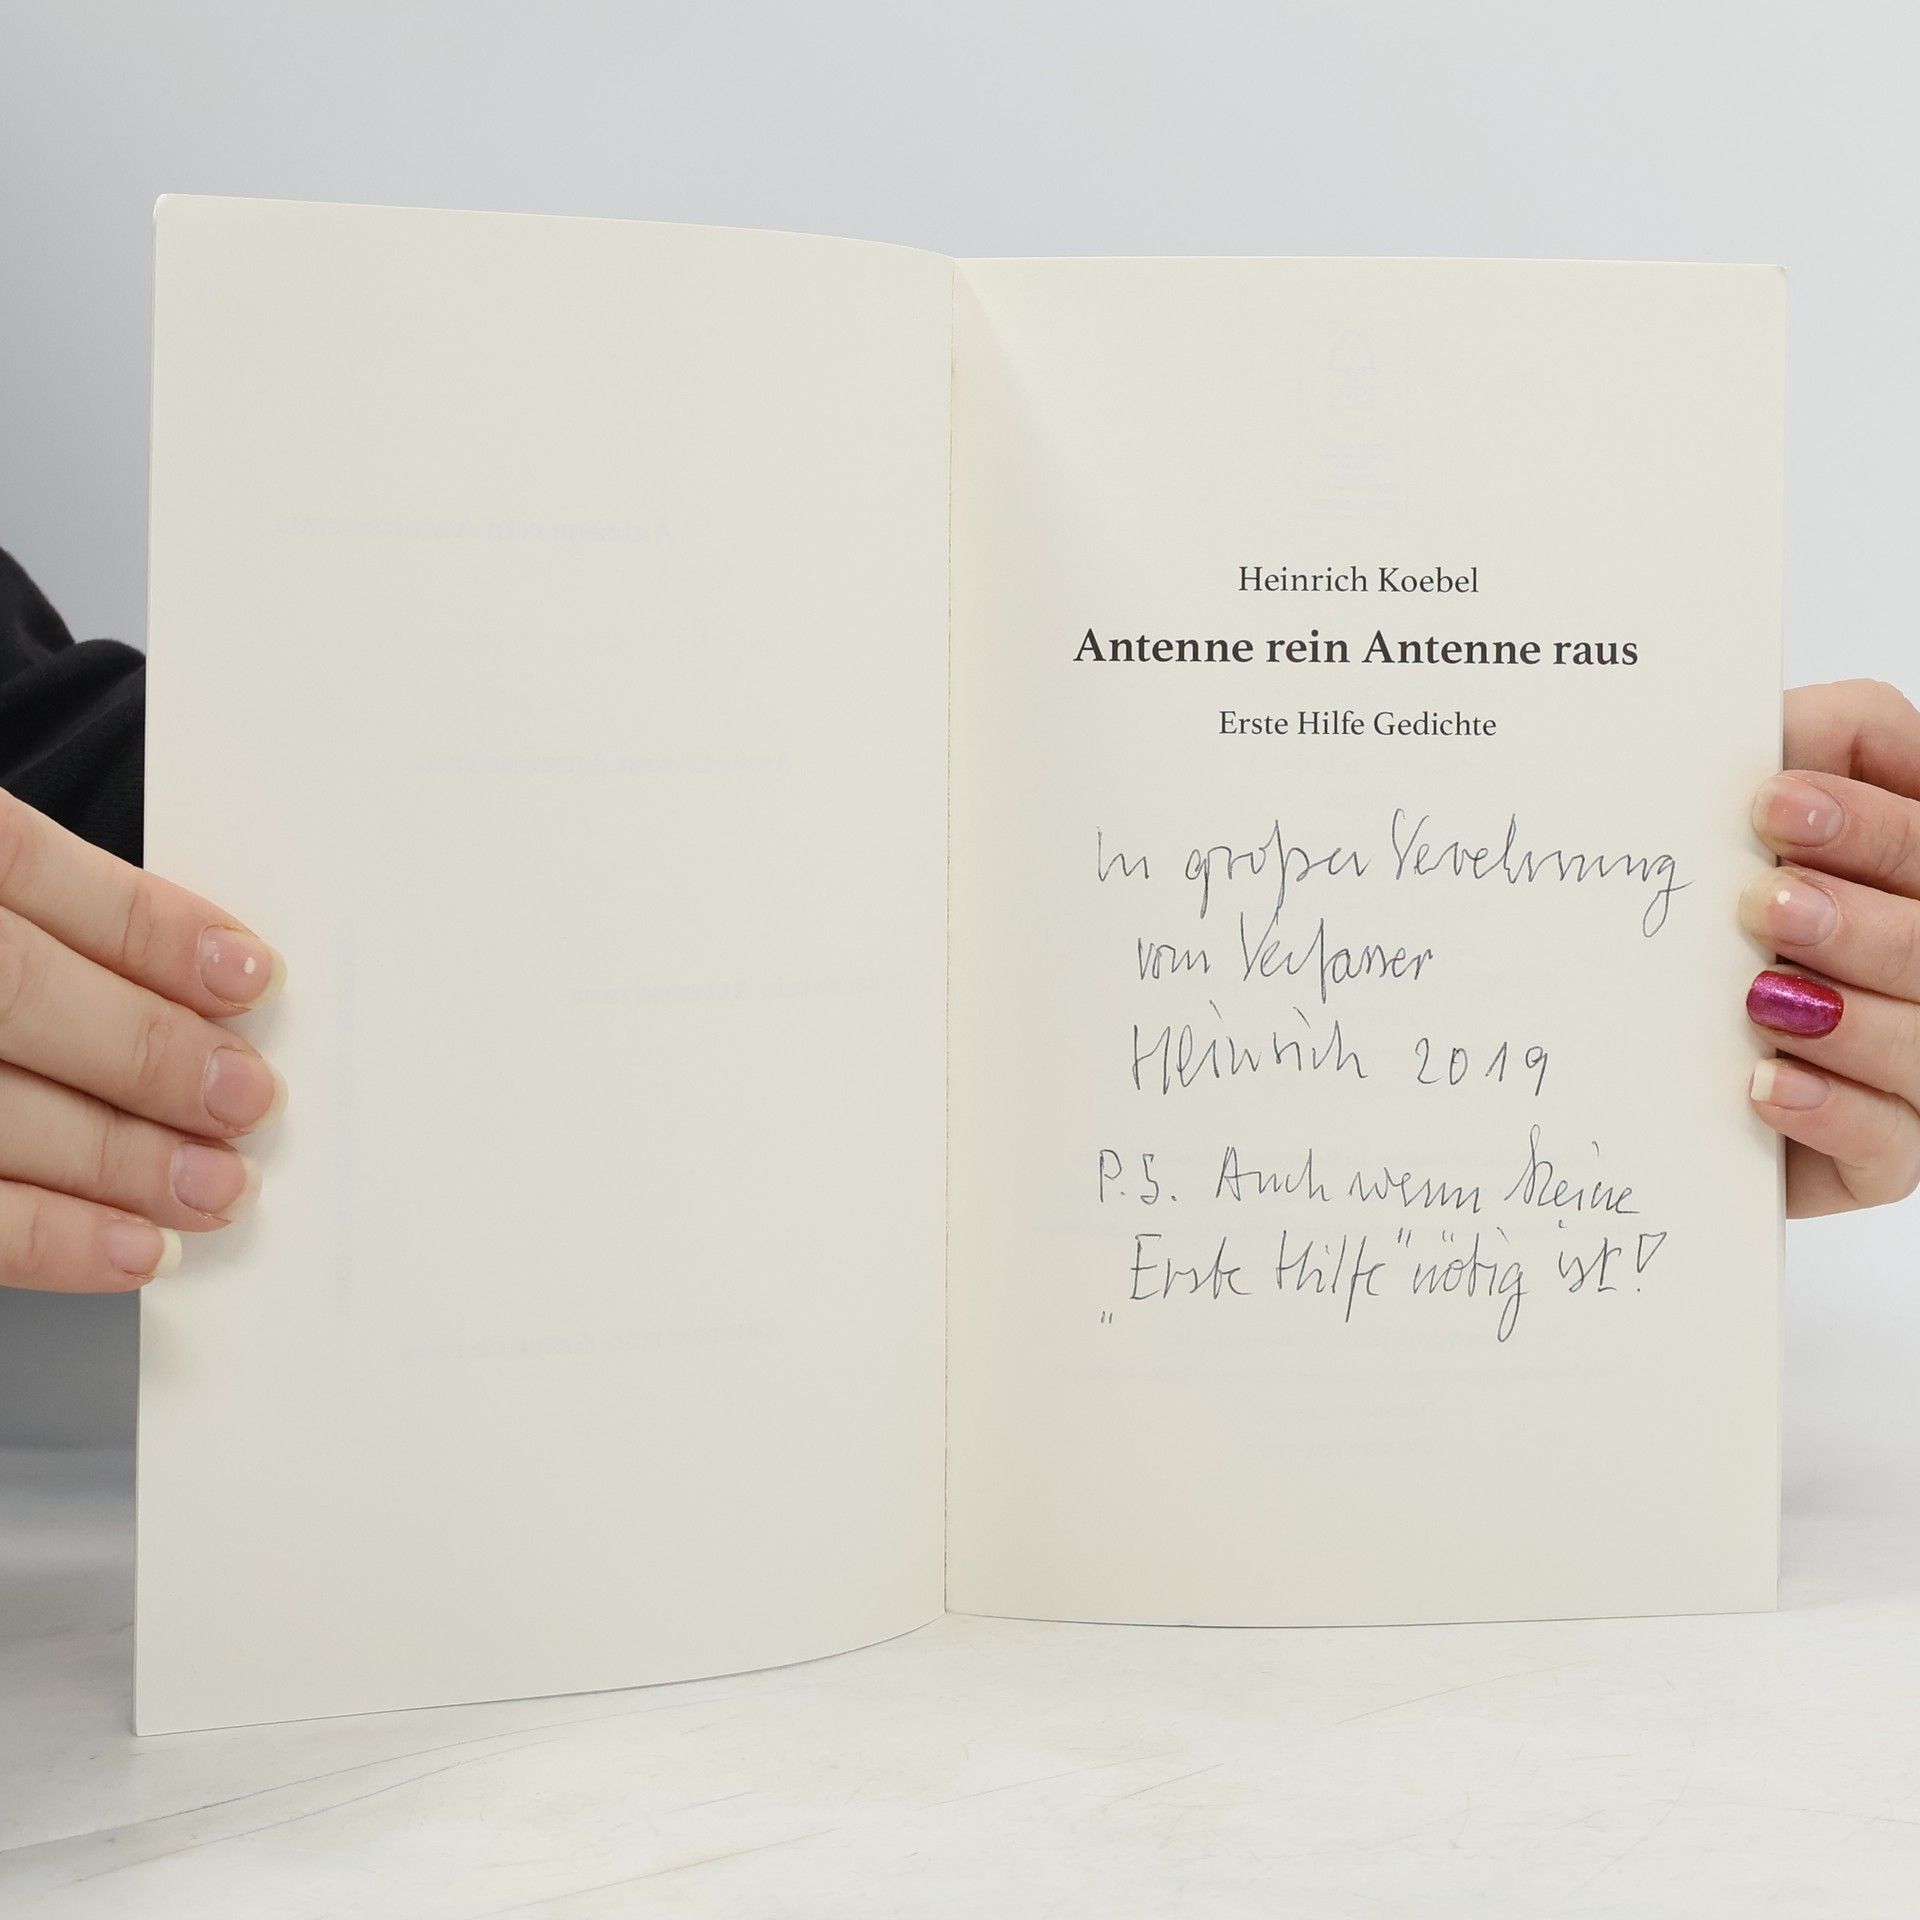 Heinrich Koebel
Antenne rein Antenne raus
Erste Hilfe Gedichte
In großer Verehrung
vom Verfasser
Heinrich 2019
P.S. Auch wenn keine
„Erste Hilfe" nötig ist!